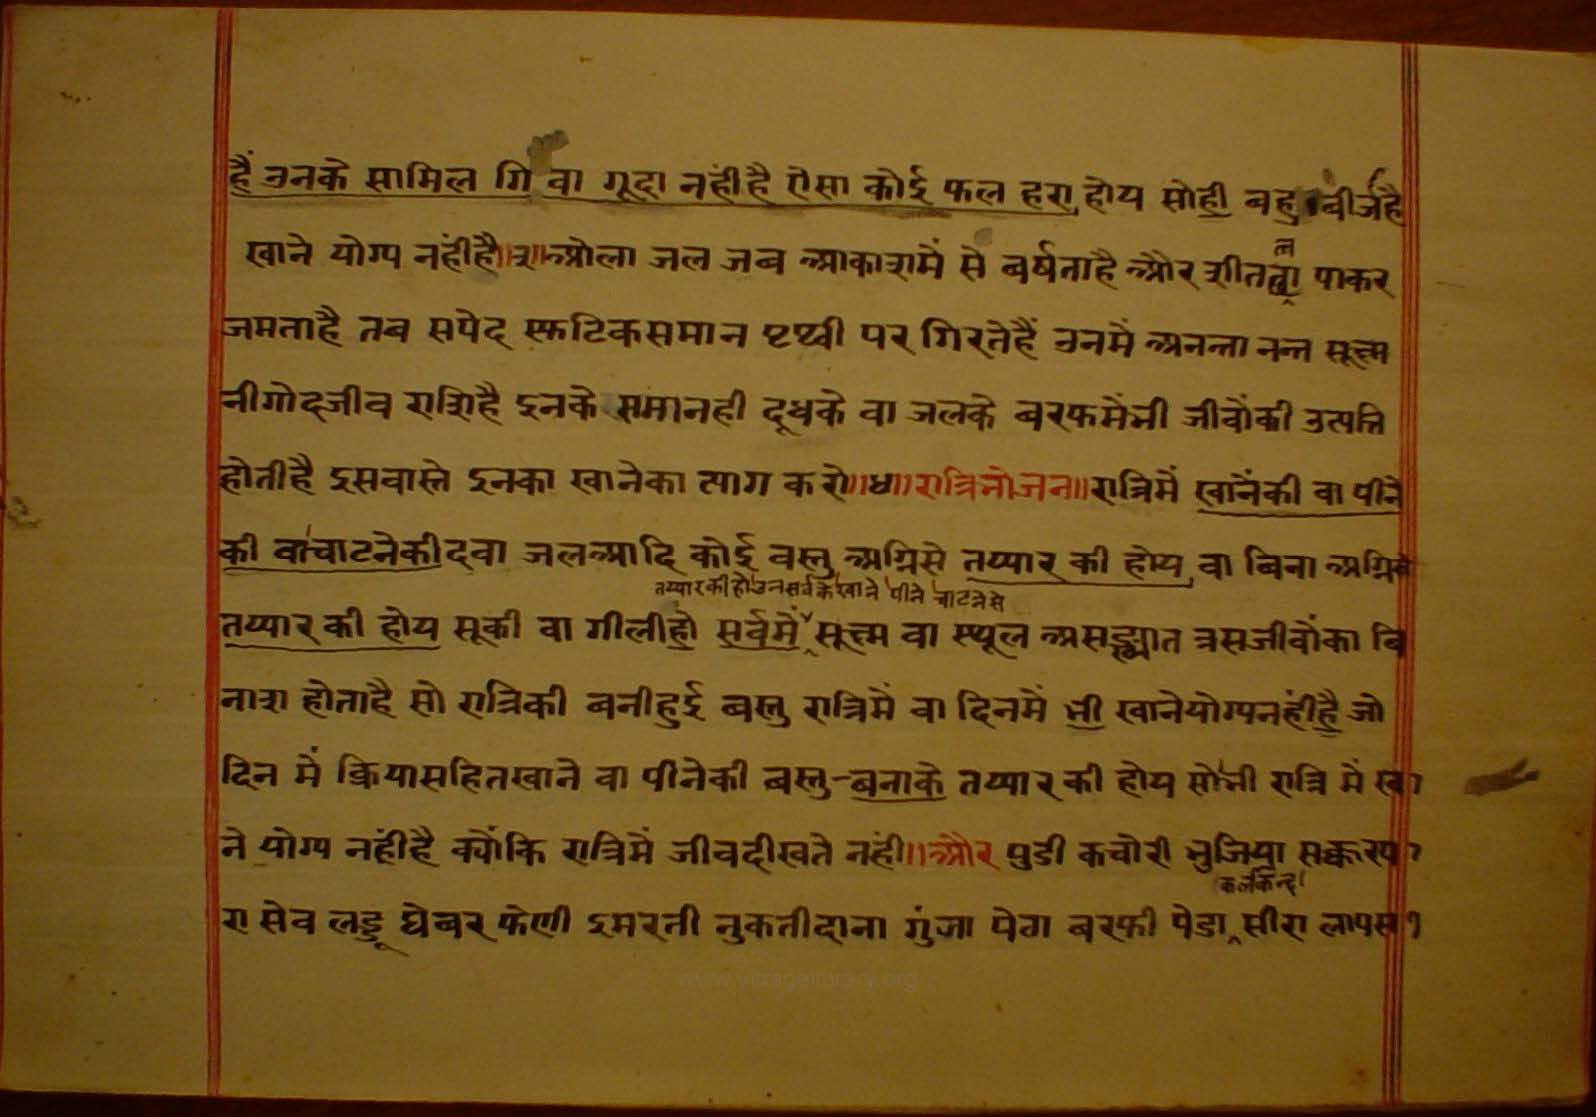 हैं उनके सामिल गि वा गूदा नहीं है ऐसा कोई फल हरा होय सोही बहु बीर्ज है
खाने योग्य नहीं है॥३॥ओला जल जब आकाशमें से बर्षता है और शीतलता पाकर
जमता है तब सपेद स्फटिकसमान पृथ्वी पर गिरते हैं उनमें अनन्ता नन्त सूक्ष्म
नीगोदजीव राशि है इनके समानही दूधके वा जलके बरफमेंभी जीवोंकी उत्पत्ति
होती है इसवास्ते इनका खानेका त्याग करो॥४॥रात्रिभोजन॥रात्रिमें खानेंकी वा पीने
की वा चाटनेकी दवा जलआदि कोई वस्तु अग्निसे तय्यार की होय वा बिना अग्निसे
तय्यार की हो उन सर्व के खाने पीने चाटने से
तय्यार की होय सूकी वा गीली हो सर्वमें सूक्ष्म वा स्थूल असङ्ख्यात त्रसजीवोंका बि
नाश होता है सो रात्रिकी बनीहुई बस्तु रात्रिमें वा दिनमें भी खानेयोग्य नहीं है जो
दिन में क्रियासहित खाने वा पीनेकी बस्तु बनाके तय्यार की होय सो भी रात्रि में खा
ने योग्य नहीं है क्योंकि रात्रिमें जीव दीखते नहीं॥और पुडी कचोरी भुजिया सक्करपा
कलाकन्द
रा सेव लड्डू घेबर फेणी इमरती नुकतीदाना गुंजा पेठा बरफी पेडा सीरा लापसी
www.vitragelibrary.org